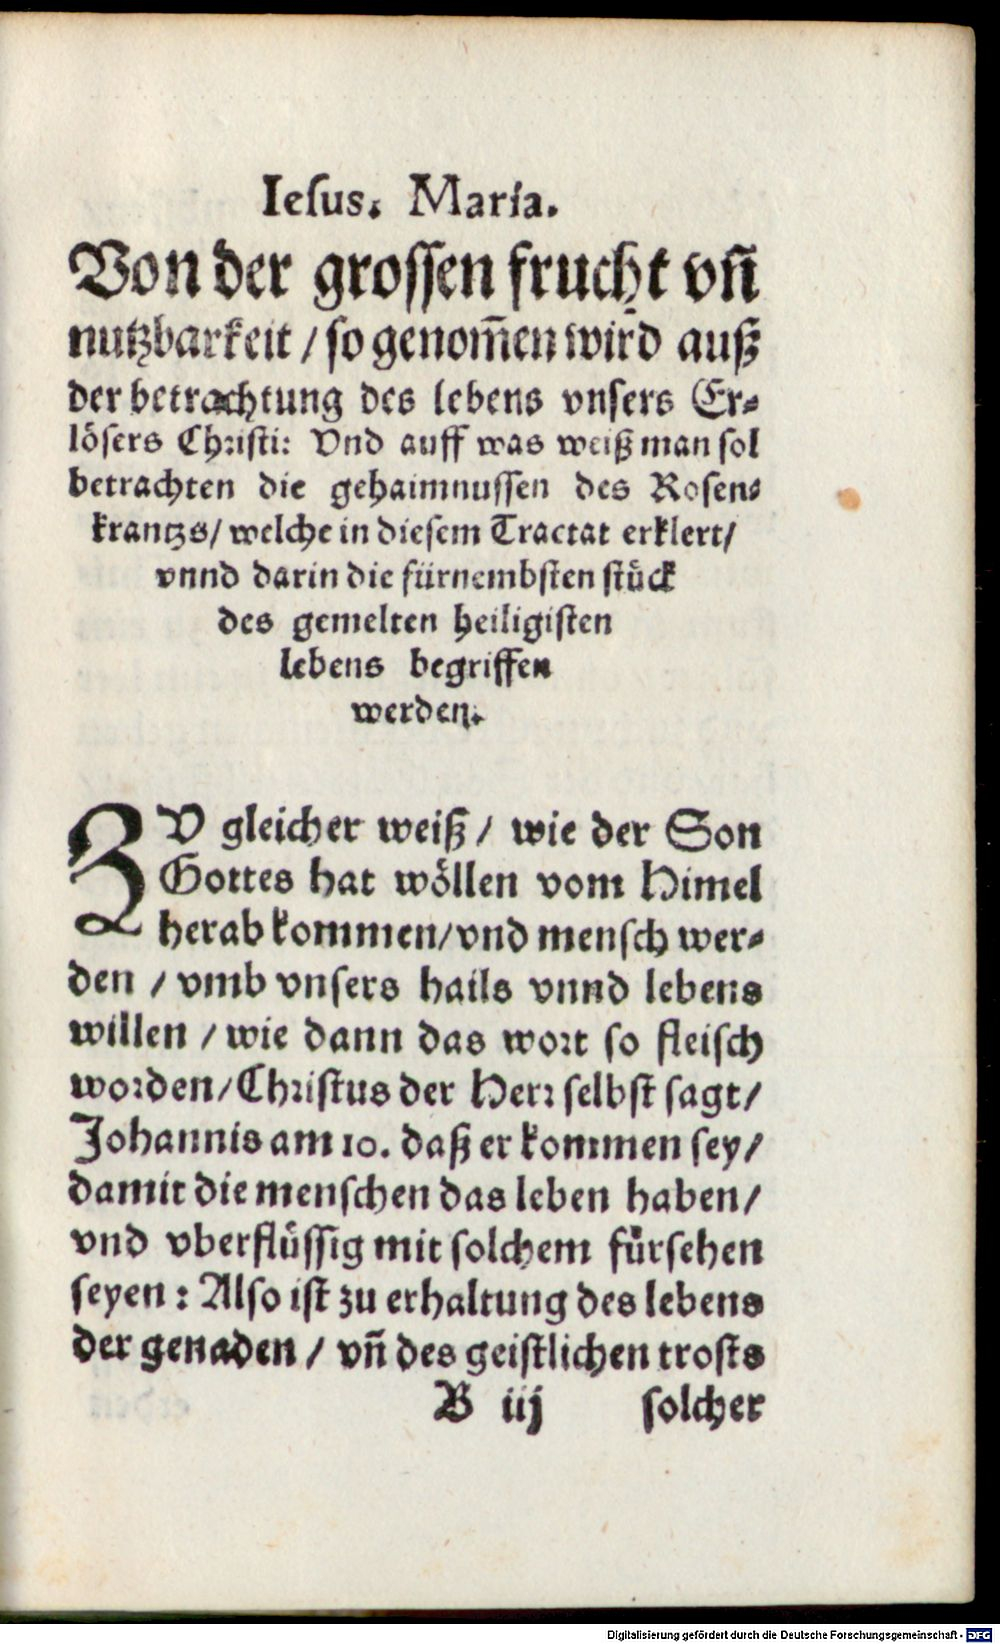 Iesus. Maria.
Von der grossen frucht vñ
nutzbarkeit / so genom̃en wird auß
der betrachtung des lebens vnsers Er-
lösers Christi: Vnd auff was weiß man sol
betrachten die gehaimnussen des Rosen-
krantzs / welche in diesem Tractat erklert /
vnnd darin die fürnembsten stück
des gemelten heiligisten
lebens begriffen
werden.
ZV gleicher weiß / wie der Son
Gottes hat wöllen vom Himel
herab kommen / vnd mensch wer-
den / vmb vnsers hails vnnd lebens
willen / wie dann das wort so fleisch
worden / Christus der Herr selbst sagt /
Johannis am 10. daß er kommen sey /
damit die menschen das leben haben /
vnd vberflüssig mit solchem fürsehen
seyen : Also ist zu erhaltung des lebens
der genaden / vñ des geistlichen trosts
B iij solcher
Digitalisierung gefördert durch die Deutsche Forschungsgemeinschaft - DFG